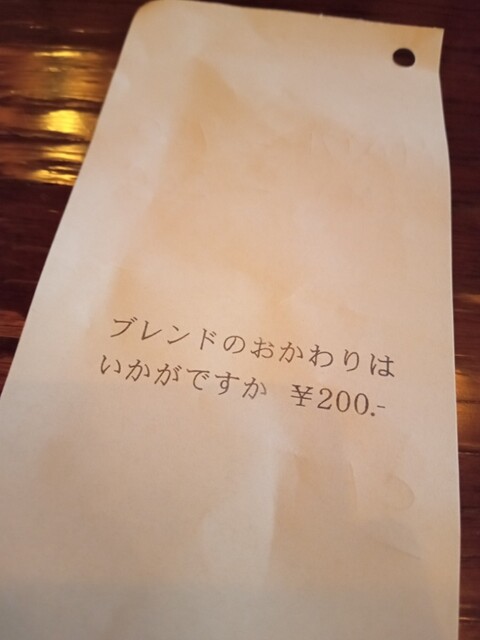 ブレンドのおかわりは
いかがですか ¥200.-